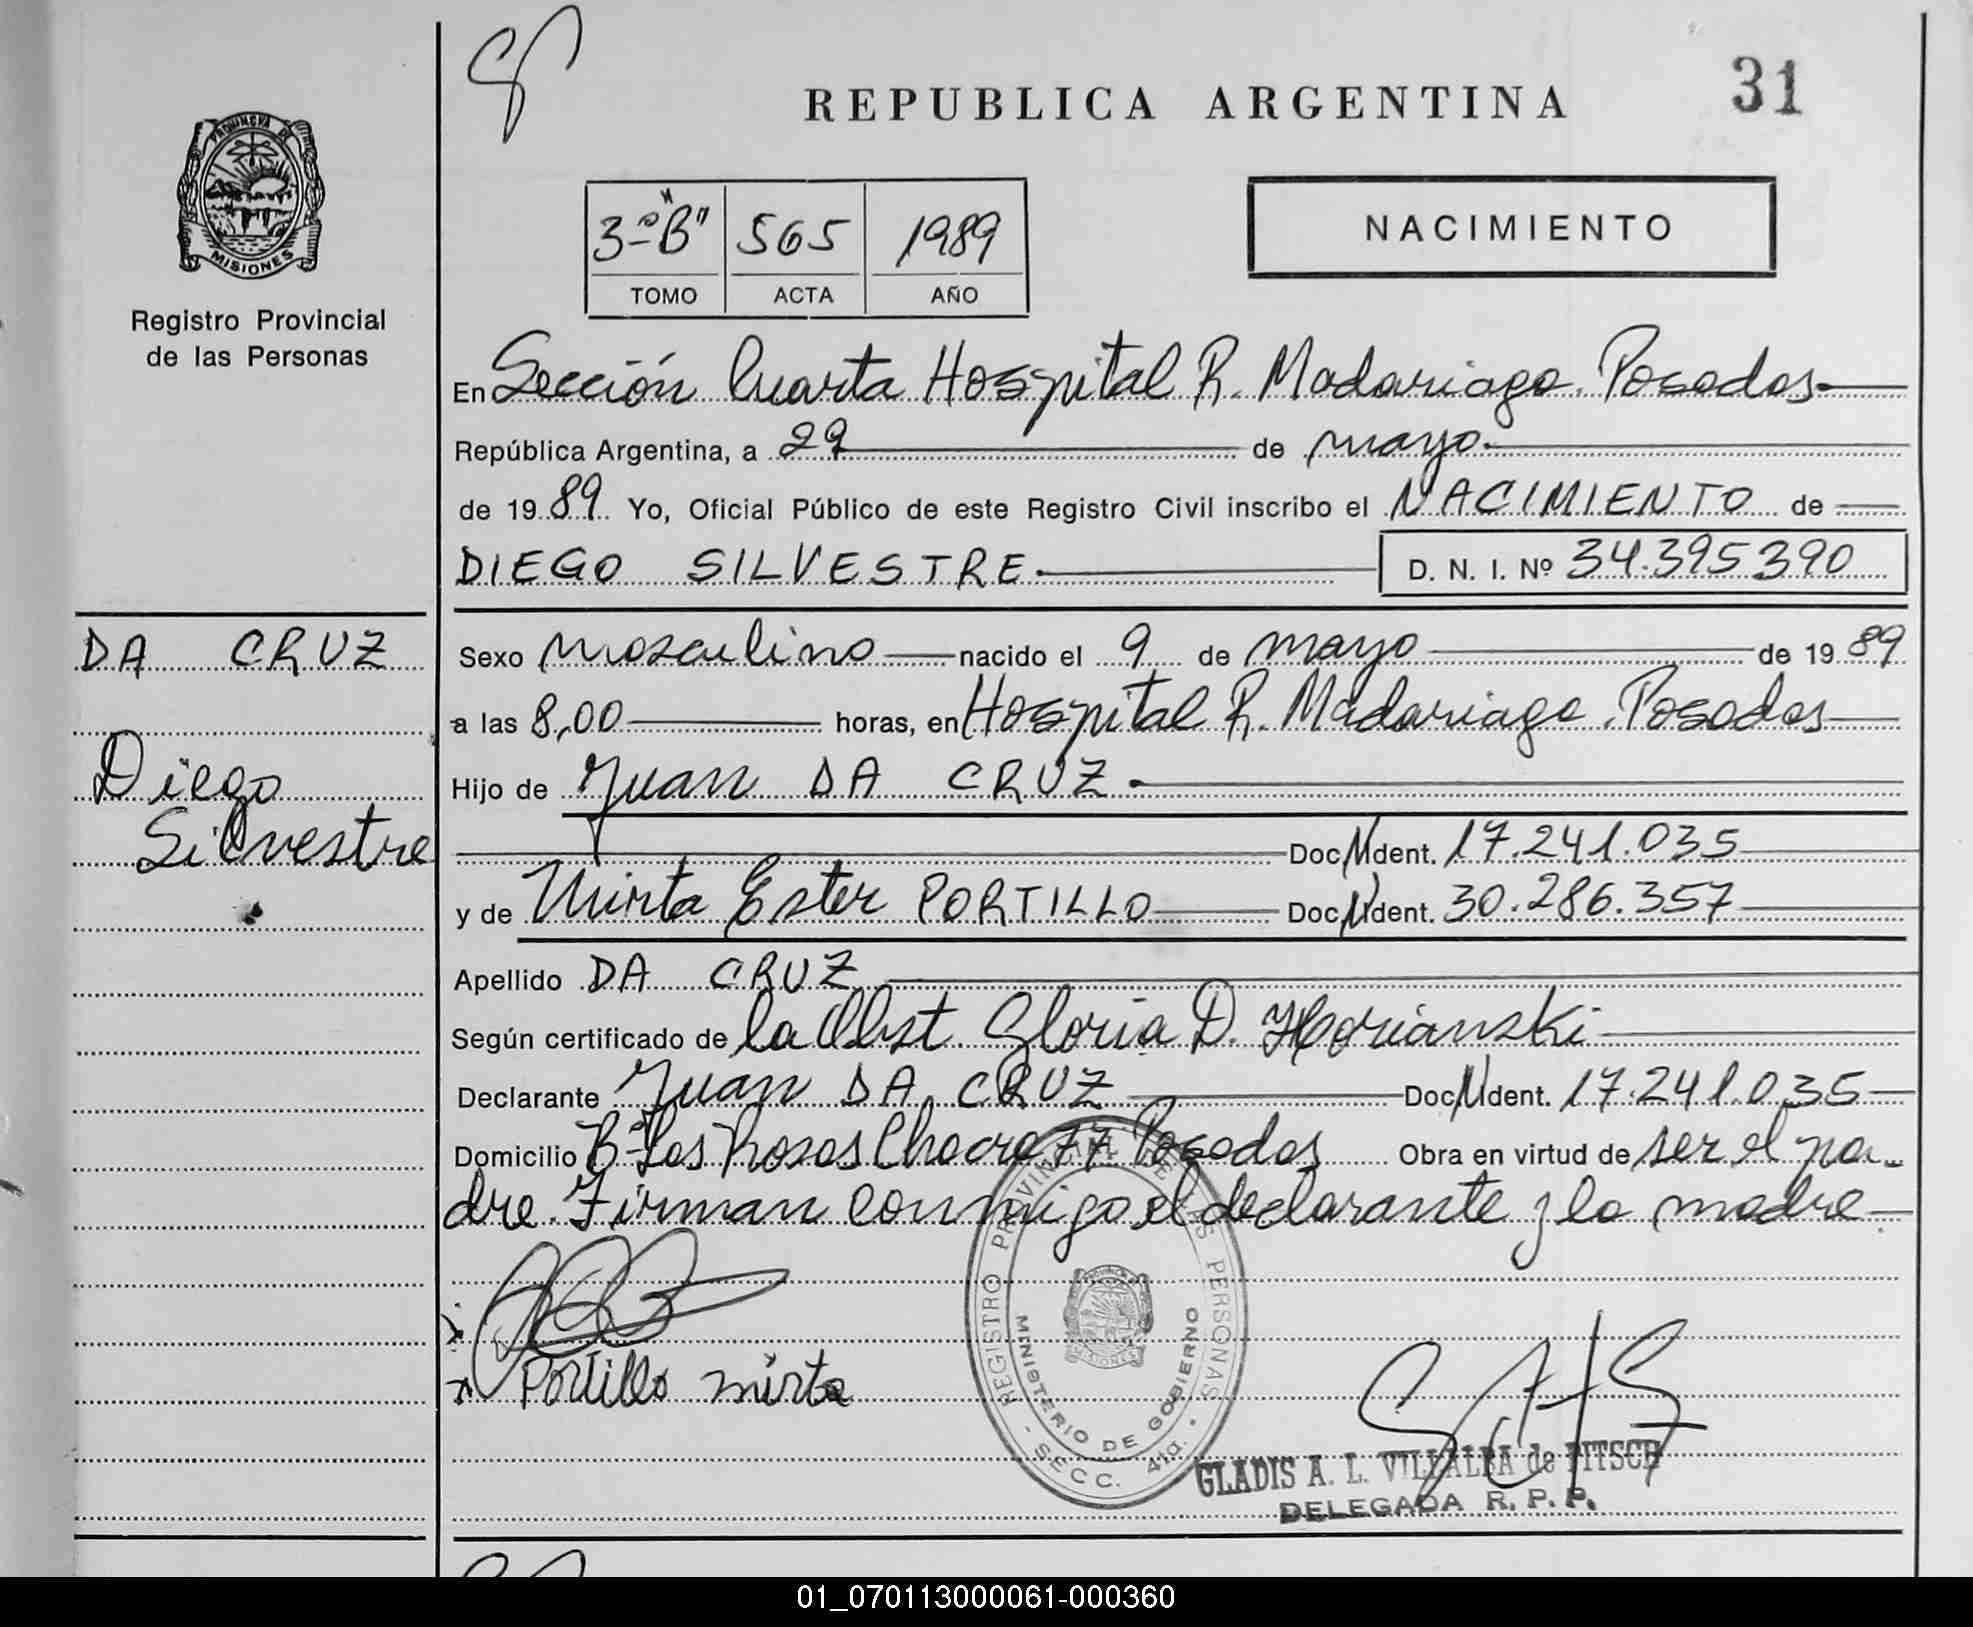 REPUBLICA ARGENTINA
31
PROVINCIA DE
MISIONES
Registro Provincial
de las Personas
3-º "B" 565 1989
TOMO ACTA AÑO
NACIMIENTO
En Sección Cuarta Hospital R. Madariaga. Posadas
República Argentina, a 29 de mayo
de 1989 Yo, Oficial Público de este Registro Civil inscribo el NACIMIENTO de
DIEGO SILVESTRE. D. N. I. Nº 34.395.390
DA CRUZ
Diego
Silvestre
Sexo masculino nacido el 9 de mayo de 1989
a las 8,00 horas, en Hospital R. Madariaga. Posadas
Hijo de Juan DA CRUZ.
Doc. Ident. 17.241.035
y de Mirta Ester PORTILLO Doc. Ident. 30.286.357
Apellido DA CRUZ
Según certificado de la Obst. Gloria D.
Declarante Juan DA CRUZ Doc. Ident. 17.241.035
Domicilio Bº Las Rosas Chacra 77 Posadas Obra en virtud de ser el pa-
dre. Firman conmigo el declarante y la madre.
Portillo mirta
REGISTRO PROVINCIAL DE LAS PERSONAS
MINISTERIO DE GOBIERNO
SECC. 4ta.
PROVINCIA DE
MISIONES
GLADIS A. L. VILLALBA de PITSCH
DELEGADA R. P. P.
01_070113000061-000360